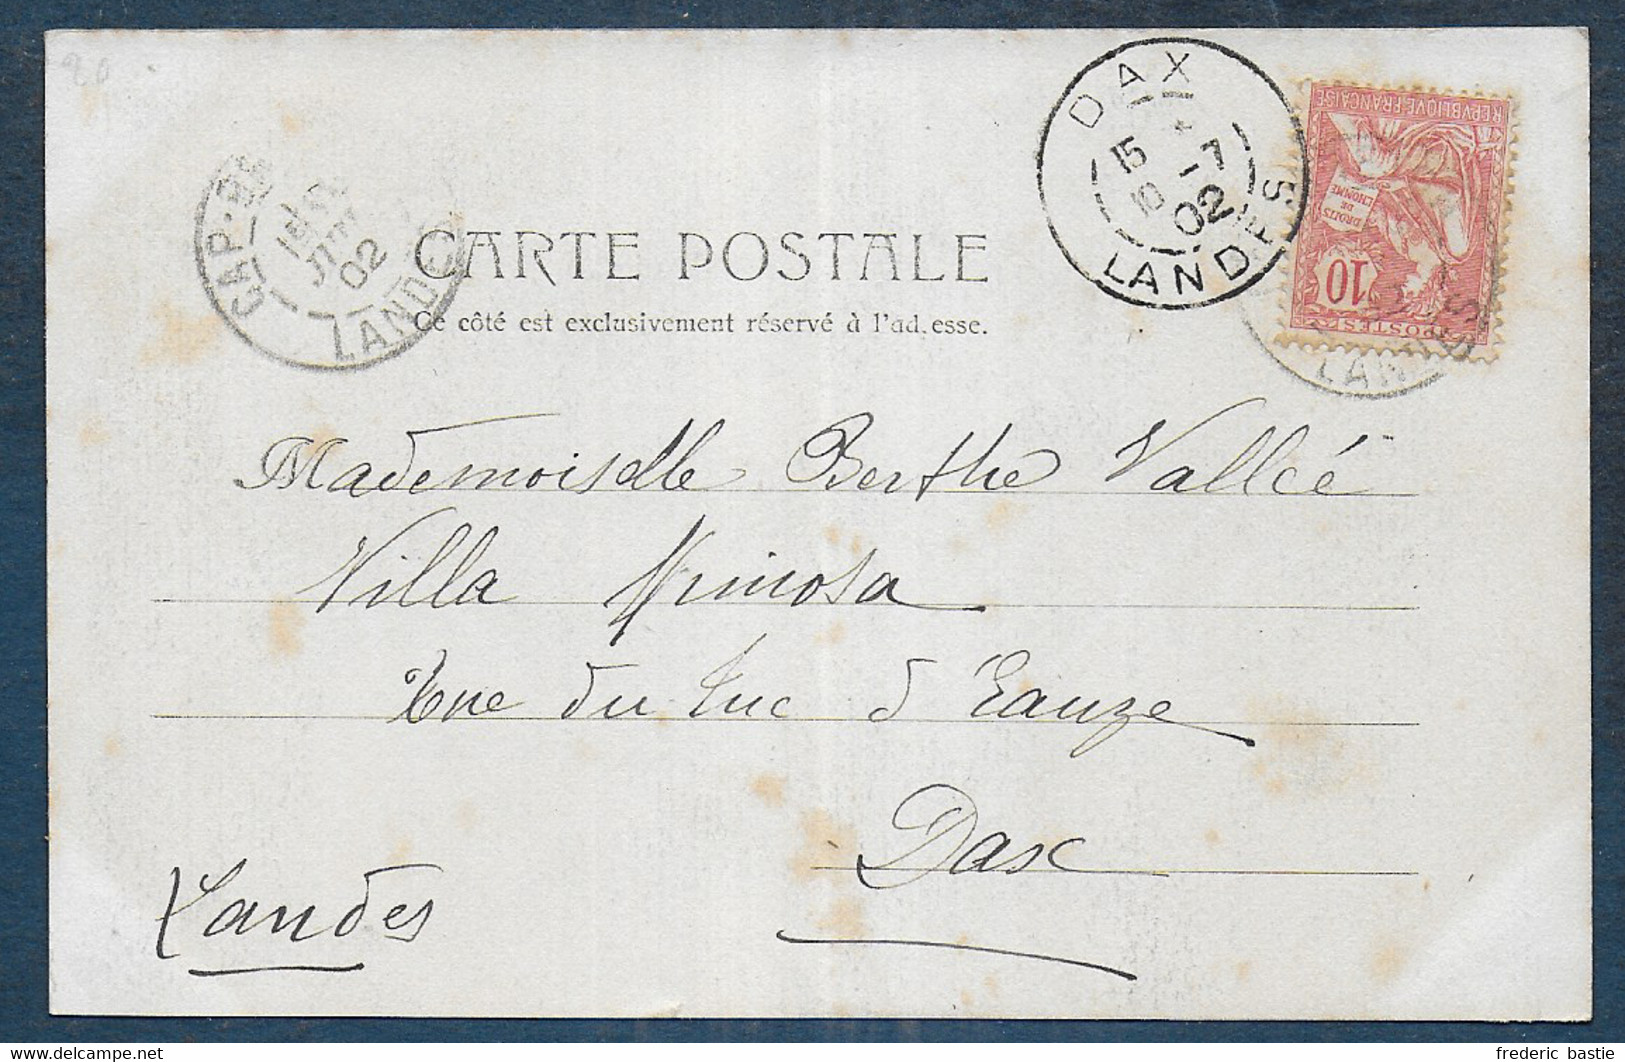 20
DAX
15
10 -7
02
LANDES
REPVBLIQVE FRANÇAISE
DROITS
DE
L'HOMME
10
POSTES
LANDES
15
JUIL
02
LANDES
CARTE POSTALE
Ce côté est exclusivement réservé à l'ad.esse.
Mademoiselle Berthe Vallée
Villa Mimosa
Rue du Tuc d'Eauze
Dax
Landes
frederic bastie